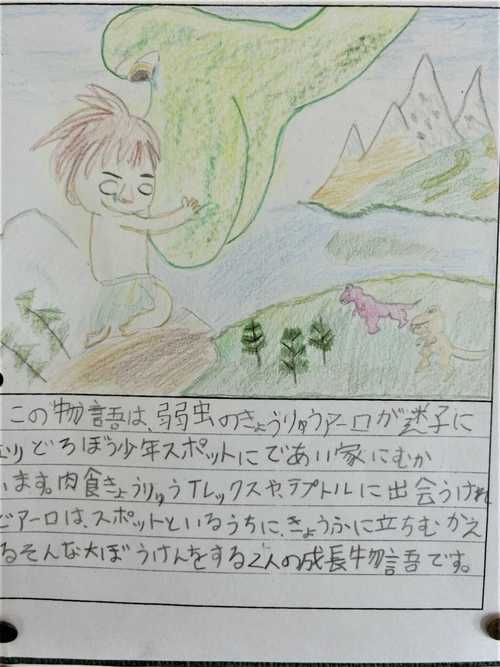 この物語は、弱虫のきょうりゅうアーロが迷子に
りどろぼう少年スポットにであい家にむか
います。肉食きょうりゅうTレックスや、ラプトルに出会うけれ
どアーロは、スポットといるうちに、きょうふに立ちむかえ
るそんな大ぼうけんをする2人の成長物語です。